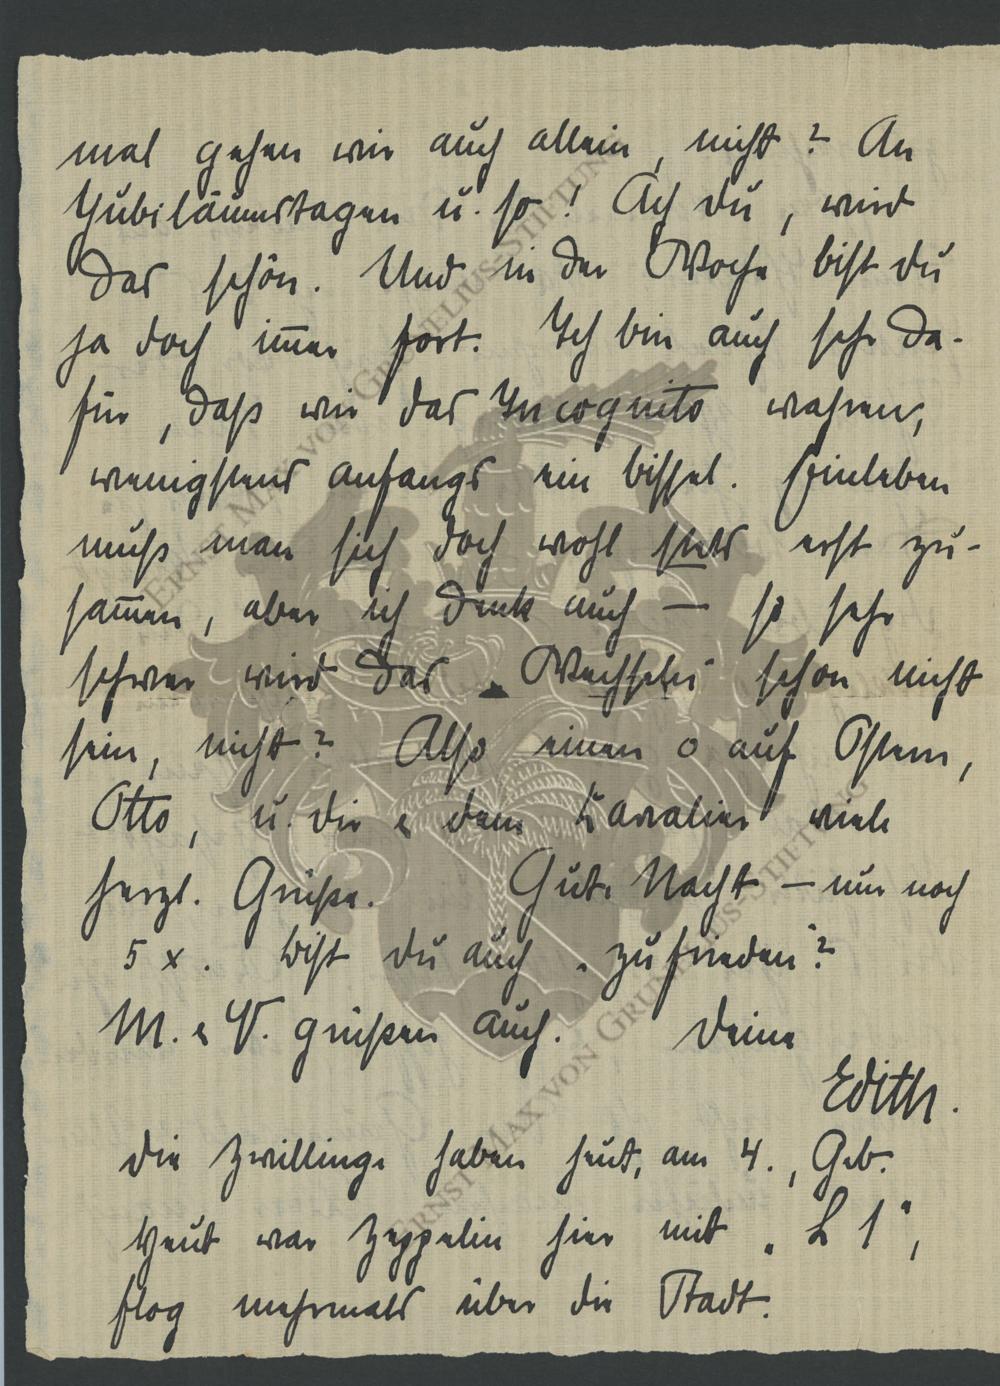 mal gehen wir auch allein, nicht? An
Jubiläumstagen u. so! Ach du, wird
das schön. Und in der Woche bist du
ja doch im̅er fort. Ich bin auch sehr da-
für, daß wir das Incognito wahren,
wenigstens anfangs ein bissel. Einleben
muß man sich doch wohl stets erst zu-
sam̅en, aber ich denk auch — so sehr
schwer wird das „Wechseln" schon nicht
sein, nicht? Also einen o auf Ostern,
Otto, u. dir & dem Kavalier viele
herzl. Grüße. Gute Nacht — nur noch
5 x. Bist du auch „zufrieden"?
M. & V. grüßen auch. Deine
Edith.
Die Zwillinge haben heut, am 4., Geb.
Heut war Zeppelin hier mit „L 1",
flog mehrmals über die Stadt.
ERNST MAX VON GRUNELIUS-STIFTUNG
ERNST MAX VON GRUNELIUS-STIFTUNG